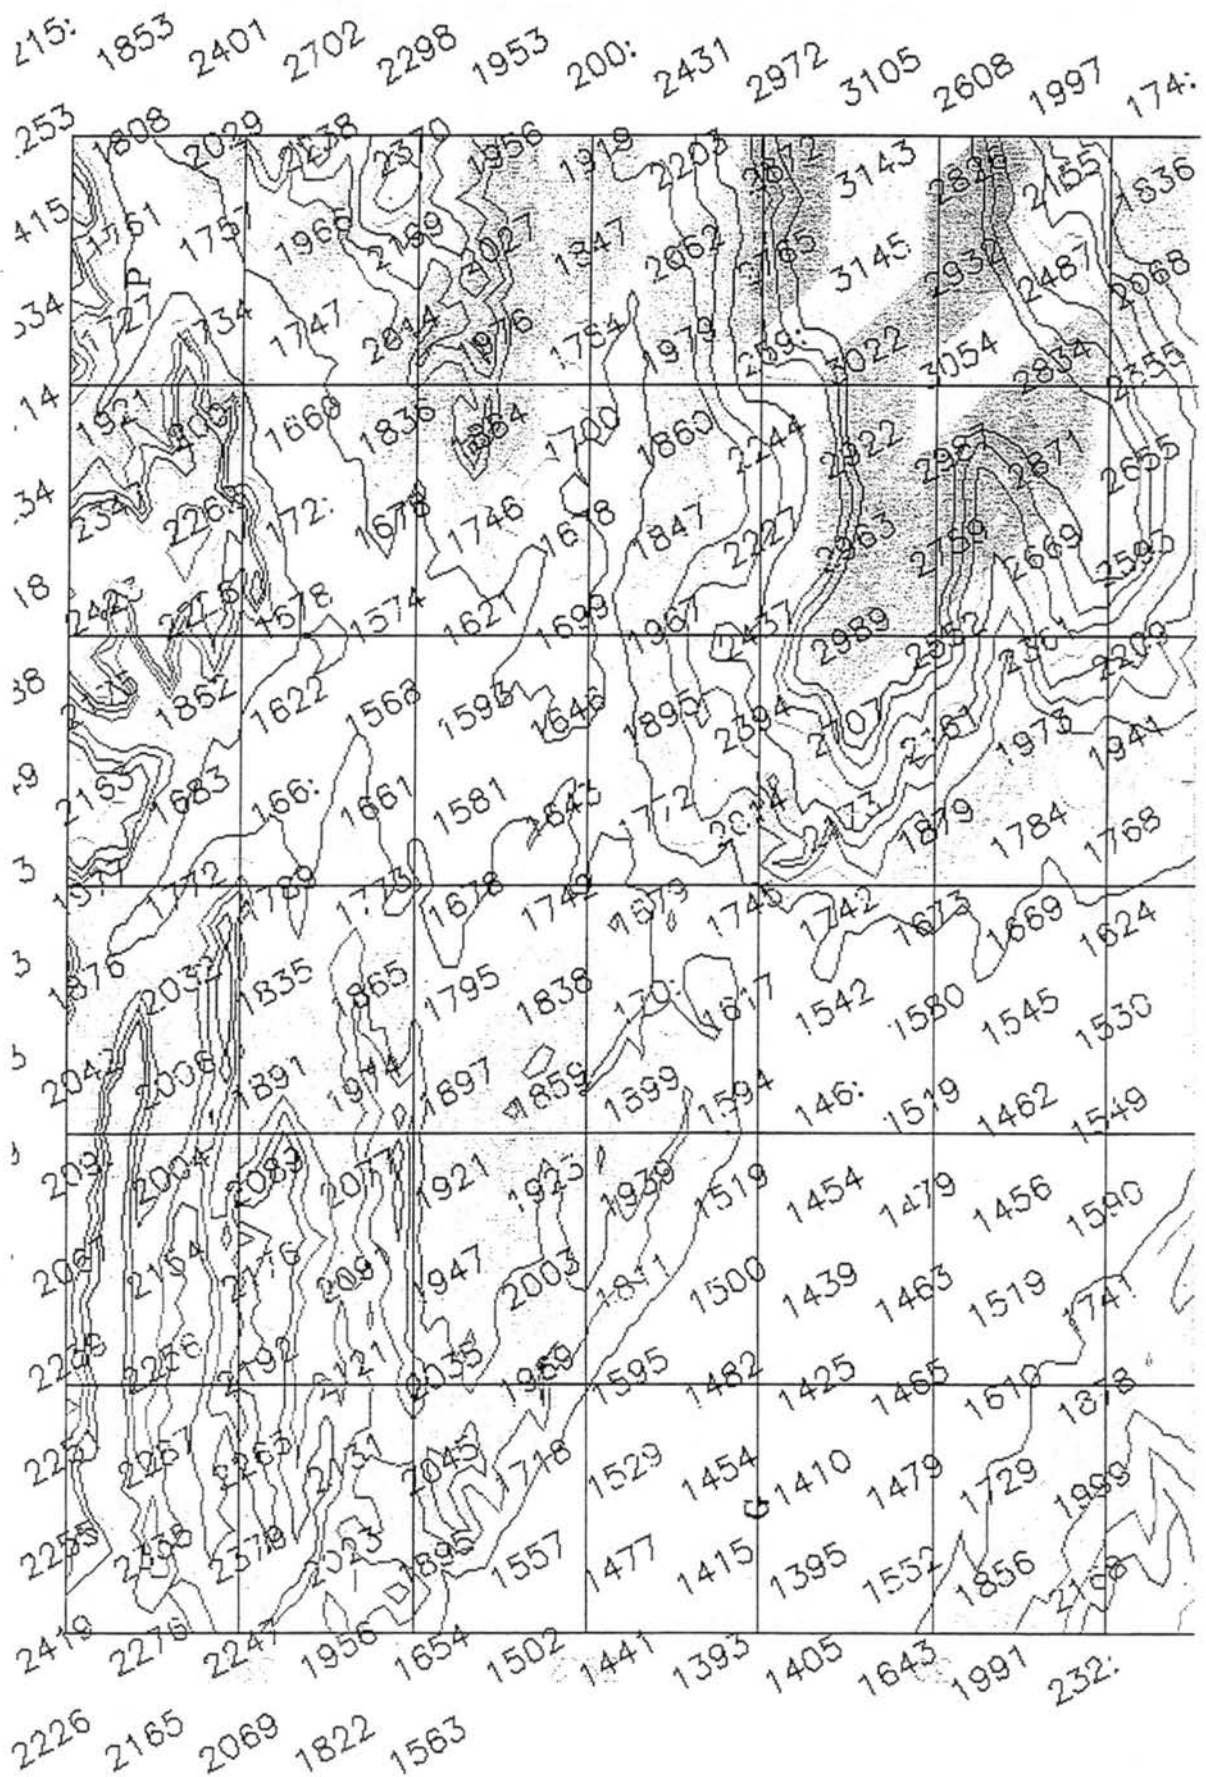 215: 1853 2401 2702 2298 1953 200: 2431 2972 3105 2608 1997 174:
253 1808 2029 2370 1956 1919 2203 3143 2155 1836
415 1757 2199 3027 1847 2062 3145 2932 2487 2068
P
534 1727 1734 1747 2814 1976 1754 1979 259: 3022 3054 2834 2355
14 1921 1669 1836 1864 1700 1860 2244 2922 2987 2871 2655
34 172: 1678 1746 1847 2227 2963 2759 2669 2593
18 1678 1574 1621 1699 1967 2437 2989 2552 2361
38 1862 1622 1568 1593 1646 1895 2394 2707 2161 1973 1941
2165 1683 166: 1661 1581 1772 2173 1879 1784 1768
1772 1789 1678 1742 1679 1742 1673 1669 1624
1876 2032 1835 1865 1795 1838 170: 1617 1542 1580 1545 1530
2042 2006 1891 1944 1897 1859 1899 1594 146: 1519 1462 1549
2004 2083 2077 1921 1925 1939 1519 1454 1479 1456 1590
2067 2154 2176 2091 1947 2003 1811 1500 1439 1463 1519 1741
2256 2192 2121 2035 1969 1595 1482 1425 1465 1610 1878
2257 2267 2263 2131 2045 1718 1529 1454 1410 1479 1729 1999
G
2255 2379 2023 1895 1557 1477 1415 1395 1552 1856 2168
2419 2276 2247 1956 1654 1502 1441 1393 1405 1643 1991 232:
2226 2165 2069 1822 1563